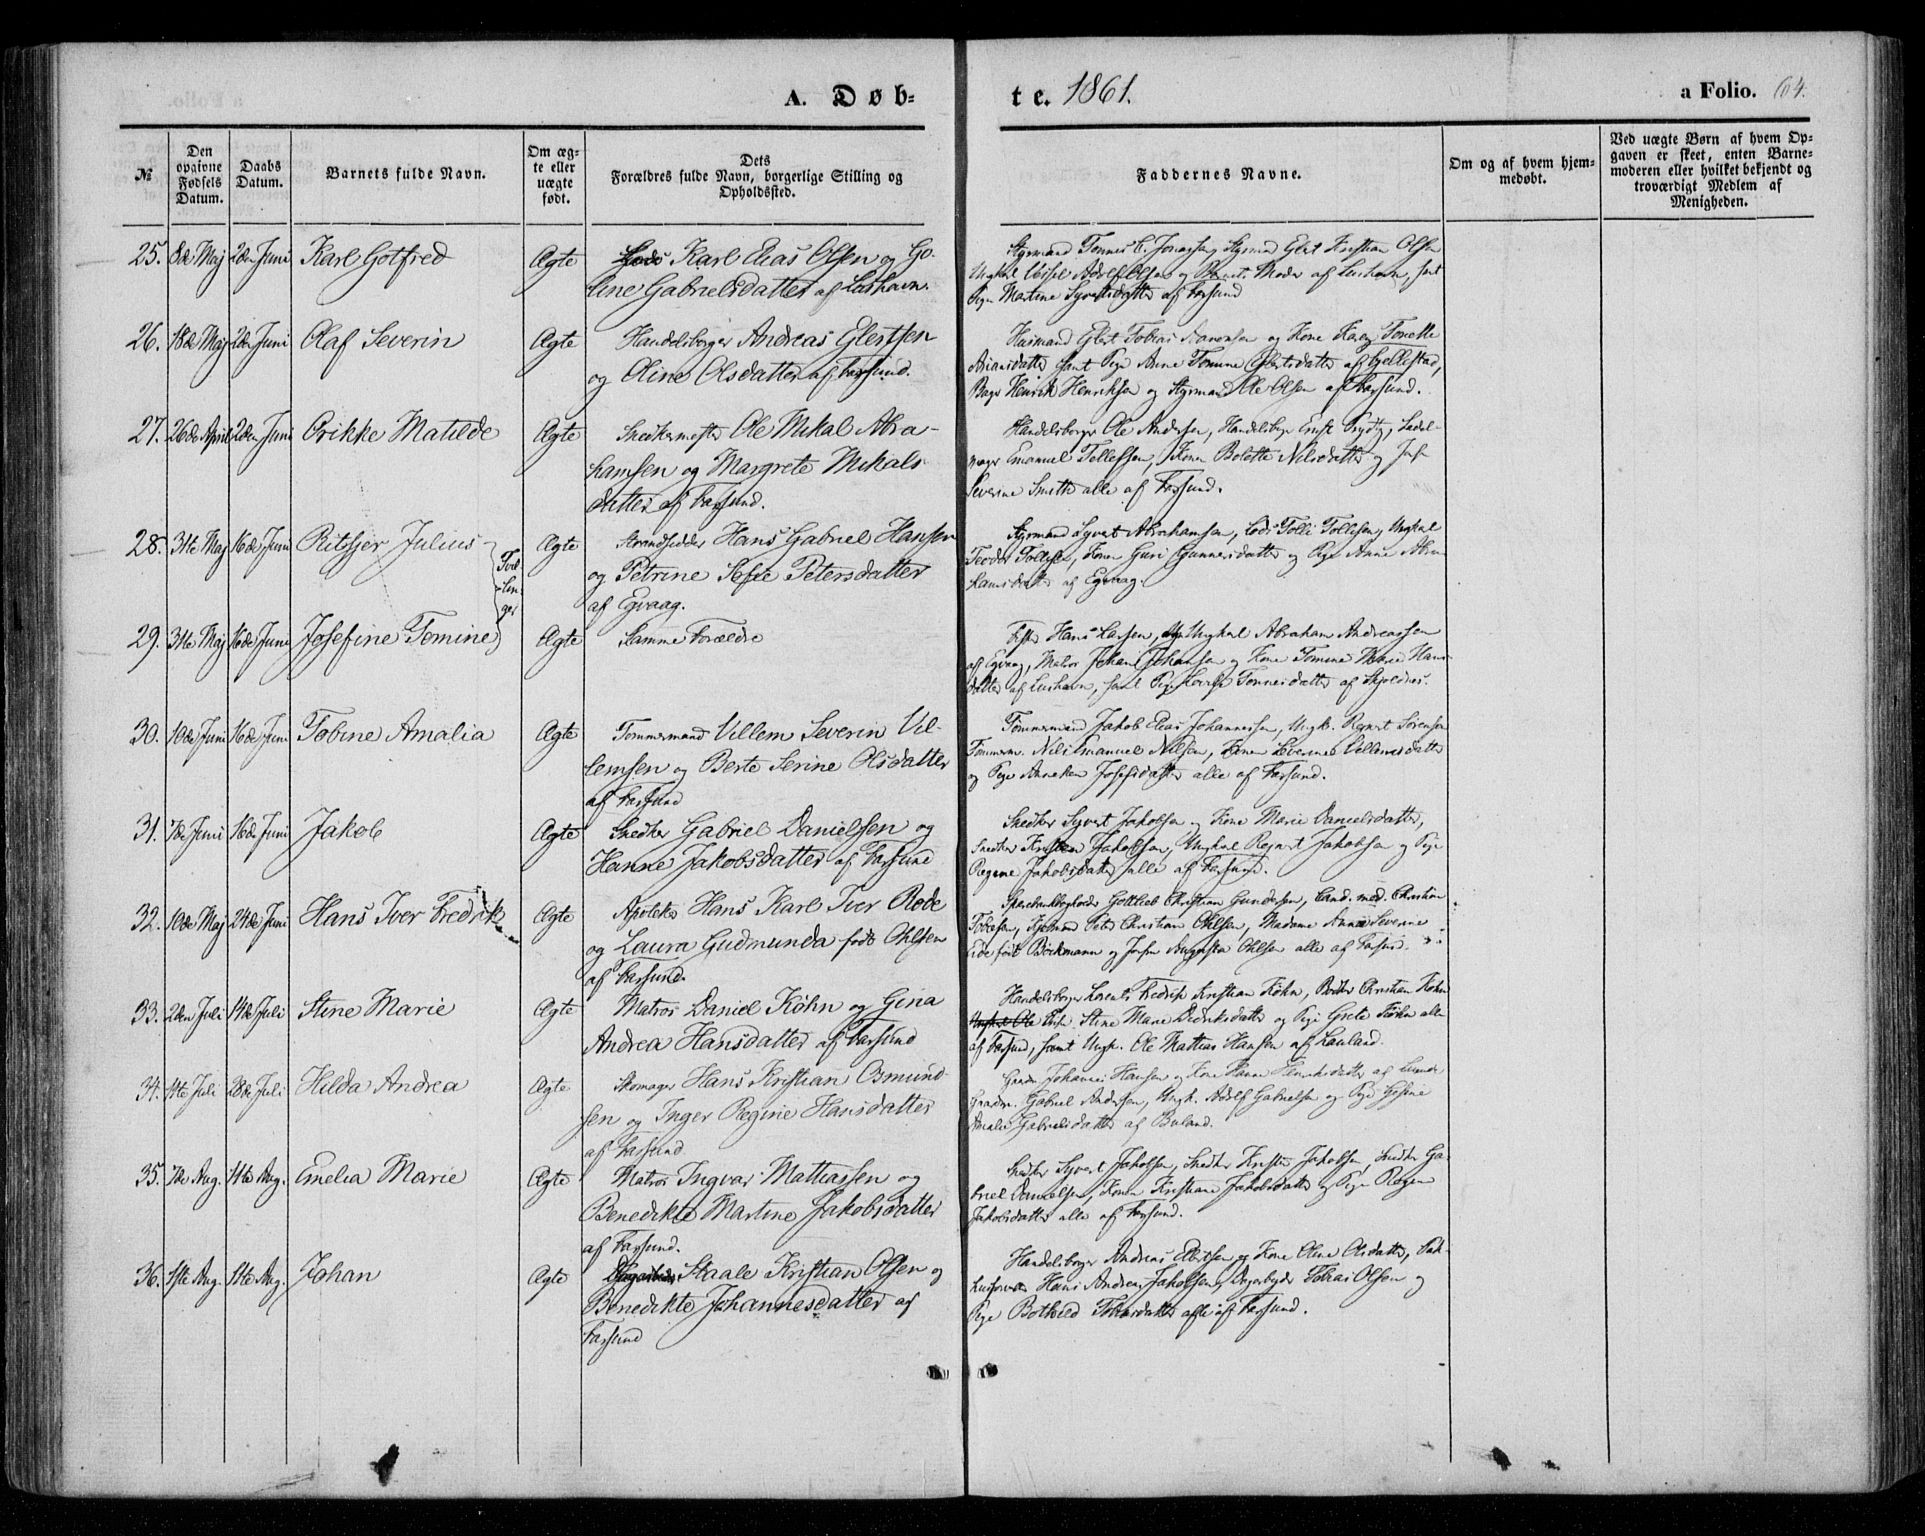 A. Døb-
te. 1861.
a Folio. 64.
№
Den opgivne Fødsels Datum.
Daabs Datum.
Barnets fulde Navn.
Om æg-
te eller
uægte
født.
Dets
Forældres fulde Navn, borgerlige Stilling og
Opholdssted.
Faddernes Navne.
Om og af hvem hjem-
medøbt.
Ved uægte Børn af hvem Op-
gaven er skeet, enten Barne-
moderen eller hvilket bekjendt og
troværdigt Medlem af
Menigheden.
25. 8de Maj 2den Juni Karl Gotfred Ægte Lods Karl Elias Olsen og Go-
line Gabrielsdatter af Loshavn.
Styrmand Tønnes Jonassen, Styrmd Elert Kristian Olsen
Adolf Olsen og Barnets Moder af Loshavn, samt
Pige Martine Syvertsdatter af Farsund
26. 18de Maj 2den Juni Olaf Severin Ægte Handelsborger Andreas Elertsen
og Oline Olsdatter af Farsund.
Husmand Elert Tobias og Kone Karen Tonette
Arianisdatter samt Pige Anne Tomine Elertsdatter af Gjellestad,
Bager Henrik Henriksen og Styrmand Ole Olsen af Farsund.
27. 26de April 2den Juni Orikke Matilde Ægte Snedkermester Ole Mikal Abra-
hamsen og Margrete Mikals-
datter af Farsund.
Handelsborger Ole Andersen, Handelsborger
Emanuel Tollefsen, Kone Bolette Nilsdatter og Jufr
Severine Smith alle af Farsund.
28. 31te Maj 16de Juni Ritsjer Julius Ægte Strandsidder Hans Gabriel Hansen
og Petrine Sofie Petersdatter
af Egvaag.
Tvil-
lin-
ger
Styrmand Syvert Abrahamsen, Lods Tolli Tollisen, Ungkal
Teodor Tollisen, Kone Guri Gunnersdatter og Pige Anne Abra-
hamsdatter af Egvaag.
29. 31te Maj 16de Juni Josefine Tomine Ægte Samme Forældre
Hans Larsen, Ungkal Abraham Andreassen
af Egvaag, Matros Johan Johansen og Kone Tomine Marie Hans-
datter af Loshavn, samt Pige Lovise Tønnesdatter af Skjoldnes.
30. 10de Juni 16de Juni Tobine Amalia Ægte Tømmermand Villem Severin Vil-
lemsen og Berte Serine Olsdatter
af Farsund
Tømmermand Jakob Elias Johannessen, Ungk. Regnert Sørensen
Tømmerm. Nils Emanuel Nilsen, Konen Severine Villemsdatter
og Pige Anneken Josefsdatter alle af Farsund.
31. 7de Juni 16de Juni Jakob Ægte Snedker Gabriel Danielssen og
Hanne Jakobsdatter af Farsund
Snedker Syvert Jakobsen og Kone Marie Danielsdatter,
Snedker Kristen Jakobsen, Ungkal Regnert Jakobsen og Pige
Regine Jakobsdatter alle af Farsund.
32. 10de Maj 24de Juni Hans Iver Fredrik Ægte Apoteker Hans Karl Iver Rode
og Laura Gudmunda født Ohlsen
af Farsund.
Sparebankbogholder Gottlieb Christian Gundersen, Cand. med. Christian
Tobiesen, Kjøbmand Peter Christian Ohlsen, Madame Anna Severine
født Birkmann og Jomfru Augusta Ohlsen alle af Farsund.
33. 2den Juli 14de Juli Stine Marie Ægte Matros Daniel Køhn og Gina
Andrea Hansdatter af Farsund
Handelsborger Lorents Fredrik Kristian Køhn, Christian Køhn
Stine Marie Didriksdatter og Pige Grete Køhn alle
af Farsund, samt Ungk. Ole Mathias Hansen af Lauland.
34. 1te Juli 28de Juli Hilda Andrea Ægte Skomager Hans Kristian Osmund-
sen og Inger Regine Hansdatter
af Farsund.
Gaardm Johannes Hansen og Kone Hanne Henriksdatter af Lunde
Gaardm. Gabriel Andersen, Ungk. Adolf Gabrielsen og Pige Gosine
Amalie Gabrielsdatter af Buland.
35. 7de Aug. 11te Aug. Emelia Marie Ægte Matros Ingvar Mattiassen og
Benedikte Martine Jakobsdatter
af Farsund.
Snedker Syvert Jakobsen, Snedker Kristen Jakobsen, Snedker Ga-
briel Danielsen, Konen Kristiane Jakobsdatter og Pige Regine
Jakobsdatter alle af Farsund.
36. 1ste Aug. 11te Aug. Johan Ægte Dagarbeider Staale Kristian Olsen og
Benedikte Johannesdatter af
Farsund
Handelsborger Andreas Elertsen og Kone Oline Olsdatter, Pak-
Hans Andreas Jakobsen, Dagarbejder Tobias Olsen og
Pige Bothild Tobiasdatter alle af Farsund.